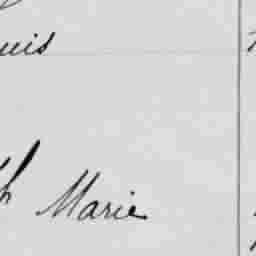 uis
h Marie